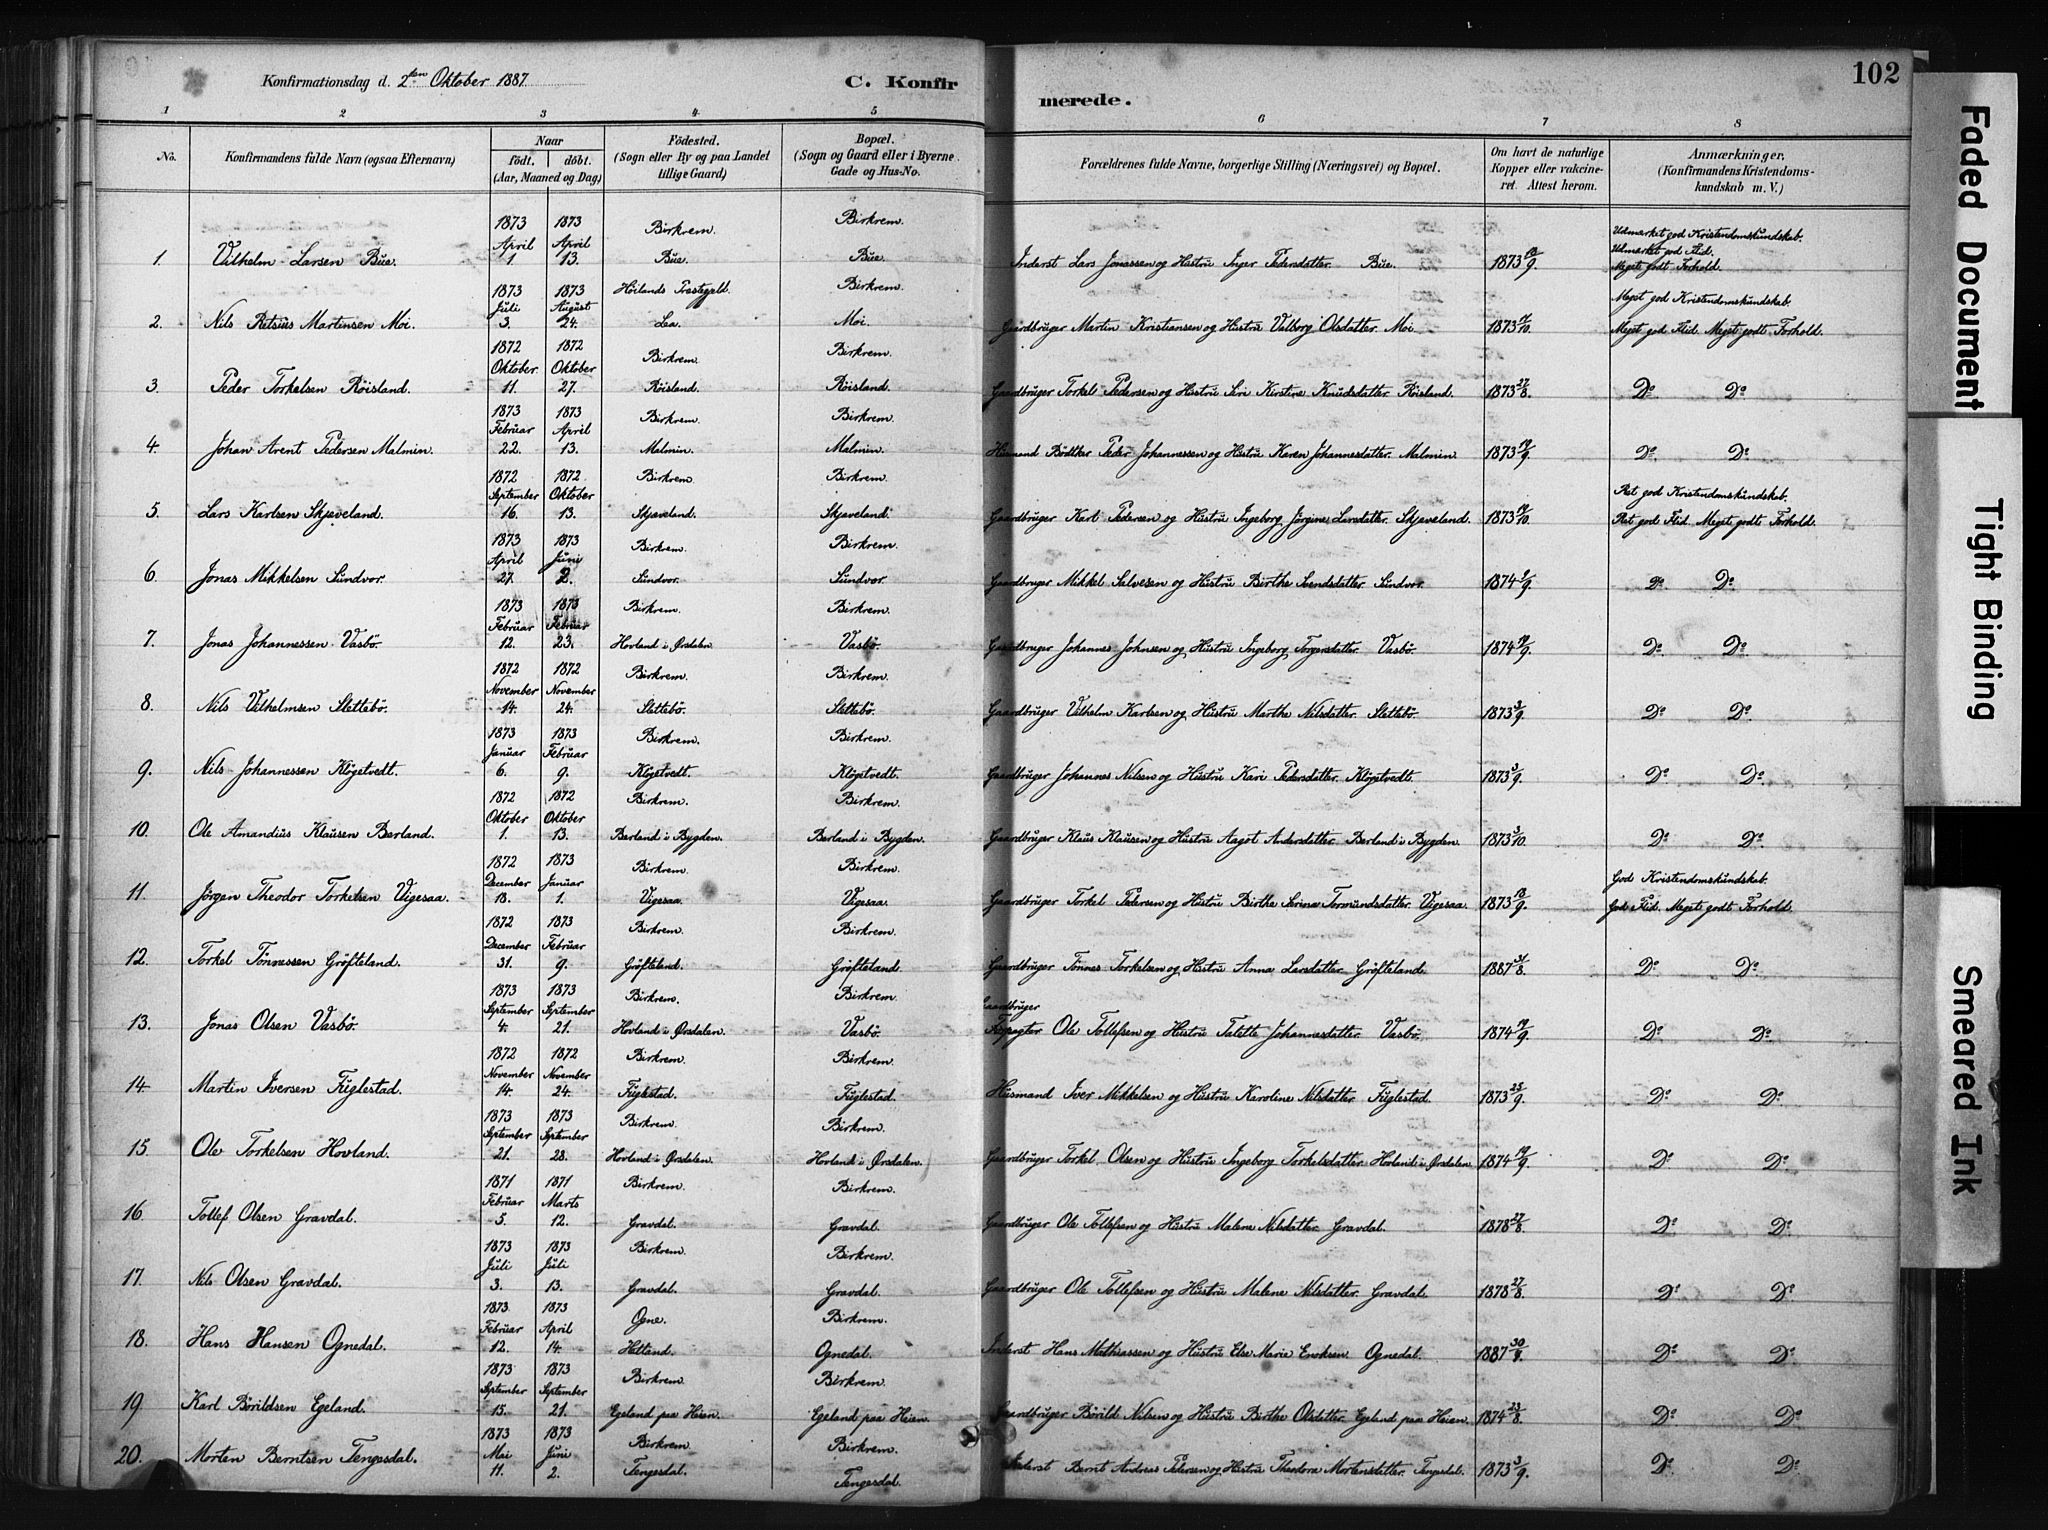 102
Konfirmationsdag d. 2den Oktober 1887. C. Konfirmerede.
1 2 3 4 5 6 7 8
No. Konfirmandens fulde Navn (ogsaa Efternavn) Naar født. døbt. (Aar, Maaned og Dag) Fødested. (Sogn eller By og paa Landet tillige Gaard) Bopæl. (Sogn og Gaard eller i Byerne Gade og Hus-No. Forældrenes fulde Navne, borgerlige Stilling (Næringsvei) og Bopæl. Om havt de naturlige Kopper eller vakcineret. Attest herom. Anmærkninger. (Konfirmandens Kristendomskundskab m. V.)
1. Vilhelm Larsen Bue. 1873 April 1 1873 April 13. Birkrem. Bue. Birkrem. Bue. Inderst Lars Jonassen og Hustru Inger Pedersdatter. Bue. 1873 Udmærket god Kristendomskundskab. Udmærket god Flid. Meget godt Forhold.
2. Nils Retsius Martinsen Moi. 1873 Juli 3. 1873 August 24. Höilands Prestegjeld. Lea. Birkrem. Moi. Gaardbruger Martin Kristiansen og Hustru Valborg Olsdatter. Moi. 1873 17/10. Meget god Kristendomskundskab. Meget god Flid. Meget godt Forhold.
3. Peder Torkelsen Röisland. 1872 Oktober 11. 1872 Oktober 27. Birkrem. Röisland. Birkrem. Röisland. Gaardbruger Torkel Pedersen og Hustru Seri Kirstine Knudsdatter. Röisland. 1873 27/8. Do. Do.
4. Johan Arent Pedersen Malmin. 1873 Februar 22. 1873 April 13. Birkrem. Malmin. Birkrem. Malmin. Husmand Bödtker Peder Johannessen og Hustru Karen Johannesdatter. Malmin. 1873 19/9. Do. Do.
5. Lars Karlsen Skjæveland. 1872 September 16. 1872 Oktober 13. Birkrem. Skjæveland. Birkrem. Skjæveland. Gaardbruger Karl Pedersen og Hustru Ingeborg Jörgine Larsdatter. Skjæveland. 1873 Ret god Kristendomskundskab. Ret god Flid. Meget godt Forhold.
6. Jonas Mikkelsen Sundvor. 1873 April 27. 1873 Juni 2. Birkrem. Sundvor. Birkrem. Sundvor. Gaardbruger Mikkel Salvesen og Hustru Birthe Svendsdatter. Sundvor. 1874 Do. Do.
7. Jonas Johannessen Vasbö. 1873 Februar 12. 1873 Februar 23. Birkrem. Hovland i Ørsdalen. Birkrem. Vasbö. Gaardbruger Johannes Johnsen og Hustru Ingeborg Torgersdatter. Vasbö. 1874 19/9. Do. Do.
8. Nils Vilhelmsen Slettebö. 1872 November 14. 1872 November 24. Birkrem. Slettebö. Birkrem. Slettebö. Gaardbruger Vilhelm Karlsen og Hustru Marthe Nilsdatter. Slettebö. 1873 3/9. Do. Do.
9. Nils Johannessen Klögetvedt. 1873 Januar 6. 1873 Februar 9. Birkrem. Klögetvedt. Birkrem. Klögetvedt. Gaardbruger Johannes Nilsen og Hustru Kari Pedersdatter. Klögetvedt. 1873 3/9. Do. Do.
10. Ole Amandius Klausen Berland. 1872 Oktober 1. 1872 Oktober 13. Birkrem. Berland i Bygden. Birkrem. Berland i Bygden. Gaardbruger Klaus Klausen og Hustru Aagot Andersdatter. Berland i Bygden. 1873 3/10. Do. Do.
11. Jörgen Theodor Torkelsen Vigesaa. 1872 December 18. 1873 Januar 1. Birkrem. Vigesaa. Birkrem. Vigesaa. Gaardbruger Torkel Pedersen og Hustru Birthe Serina Tormundsdatter. Vigesaa. 1873 God Kristendomskundskab. God Flid. Meget godt Forhold.
12. Torkel Tönnessen Gröfteland. 1872 December 31. 1873 Februar 9. Birkrem. Gröfteland. Birkrem. Gröfteland. Gaardbruger Tönnes Torkelsen og Hustru Anna Larsdatter. Gröfteland. 1887 31/8. Do. Do.
13. Jonas Olsen Vasbö. 1873 September 4. 1873 September 21. Birkrem. Hovland i Ørsdalen. Birkrem. Vasbö. Gaardbruger Ole Tollefsen og Hustru Talette Johannesdatter. Vasbö. 1874 19/9. Do. Do.
14. Martin Iversen Fuglestad. 1872 November 14. 1872 November 24. Birkrem. Fuglestad. Birkrem. Fuglestad. Husmand Iver Mikkelsen og Hustru Karoline Nilsdatter. Fuglestad. 1873 25/9. Do. Do.
15. Ole Torkelsen Hovland. 1873 September 21. 1873 September 28. Birkrem. Hovland i Ørsdalen. Birkrem. Hovland i Ørsdalen. Gaardbruger Torkel Olsen og Hustru Ingeborg Torkelsdatter. Hovland i Ørsdalen. 1874 19/9. Do. Do.
16. Tollef Olsen Gravdal. 1871 Februar 5. 1871 Marts 12. Birkrem. Gravdal. Birkrem. Gravdal. Gaardbruger Ole Tollefsen og Hustru Malene Nilsdatter. Gravdal. 1878 27/8. Do. Do.
17. Nils Olsen Gravdal. 1873 Juli 3. 1873 Juli 13. Birkrem. Gravdal. Birkrem. Gravdal. Gaardbruger Ole Tollefsen og Hustru Malene Nilsdatter. Gravdal. 1878 27/8. Do. Do.
18. Hans Hansen Ognedal. 1873 Februar 12. 1873 April 14. Ogne. Hetland. Birkrem. Ognedal. Inderst Hans Mathiassen og Hustru Else Marie Enoksen. Ognedal. 1887 Do. Do.
19. Karl Börildsen Egeland. 1873 September 15. 1873 September 21. Birkrem. Egeland paa Heien. Birkrem. Egeland paa Heien. Gaardbruger Börild Nilsen og Hustru Birthe Olsdatter. Egeland paa Heien. 1874 23/8. Do. Do.
20. Morten Berntsen Tengesdal. 1873 Mai 11. 1873 Juni 2. Birkrem. Tengesdal. Birkrem. Tengesdal. Inderst Bernt Andreas Pedersen og Hustru Theodora Mortensdatter. Tengesdal. 1873 3/9. Do. Do.
Faded Document
Tight Binding
Smeared Ink